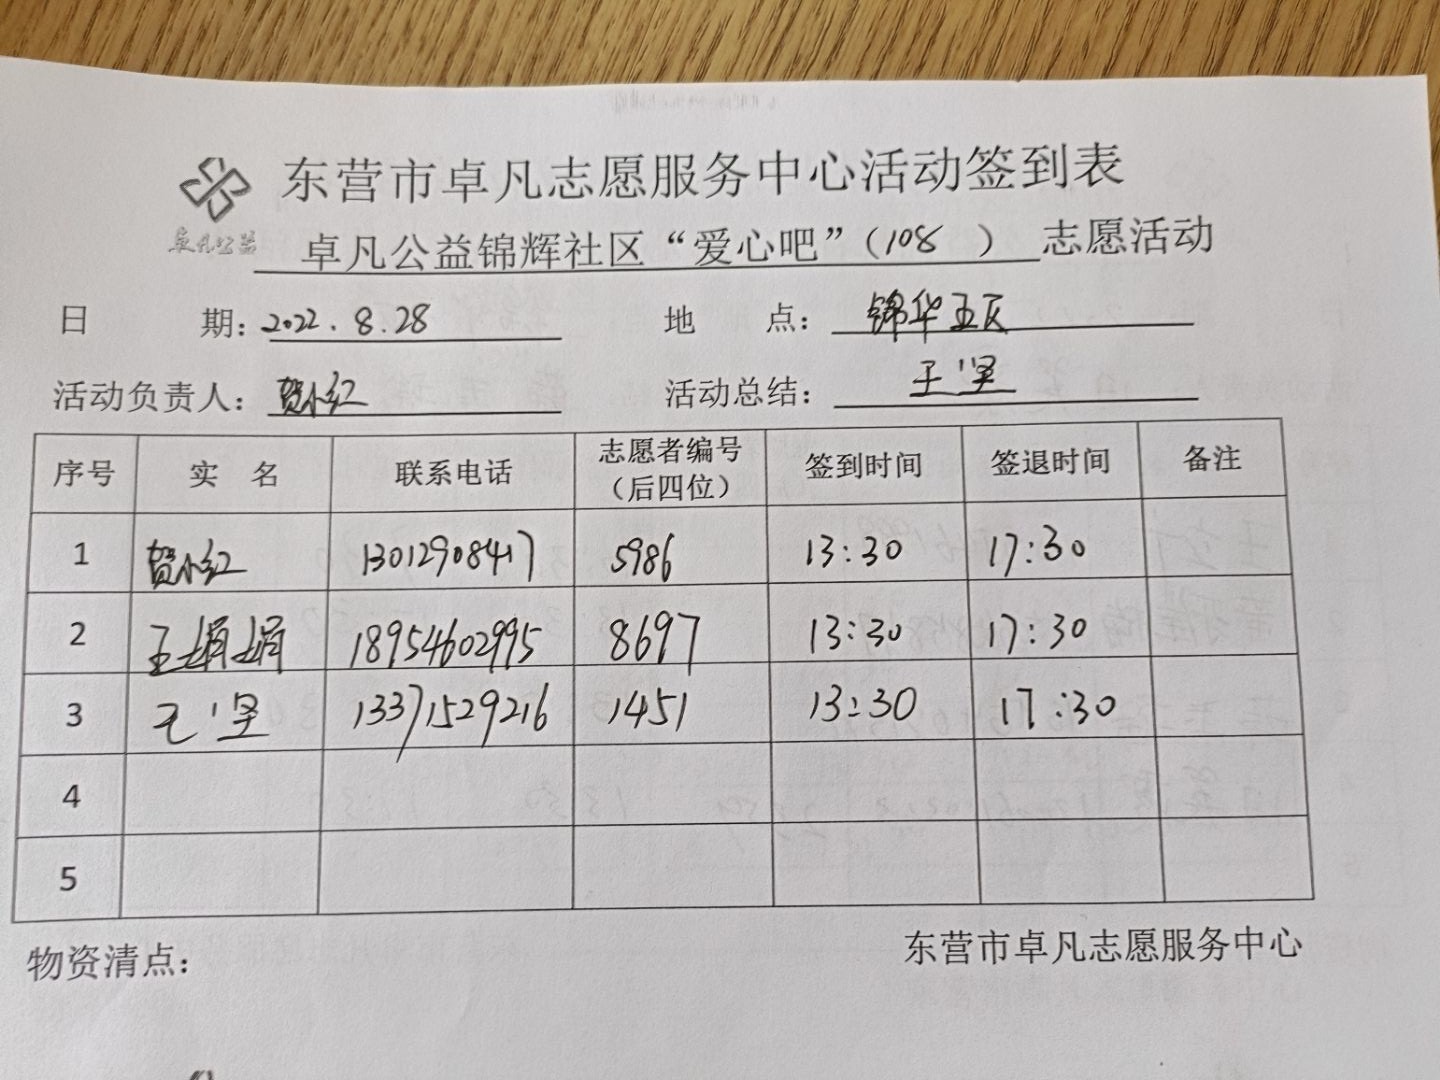 东营市卓凡志愿服务中心活动签到表
卓凡公益
卓凡公益锦辉社区“爱心吧”（108 ）志愿活动
日 期：2022.8.28 地 点：锦华五区
活动负责人：贺小红 活动总结：王坚
序号 实 名 联系电话 志愿者编号（后四位） 签到时间 签退时间 备注
1 贺小红 13012908417 5986 13:30 17:30
2 王娟娟 18954602995 8697 13:30 17:30
3 王坚 13371529216 1451 13:30 17:30
4
5
物资清点： 东营市卓凡志愿服务中心